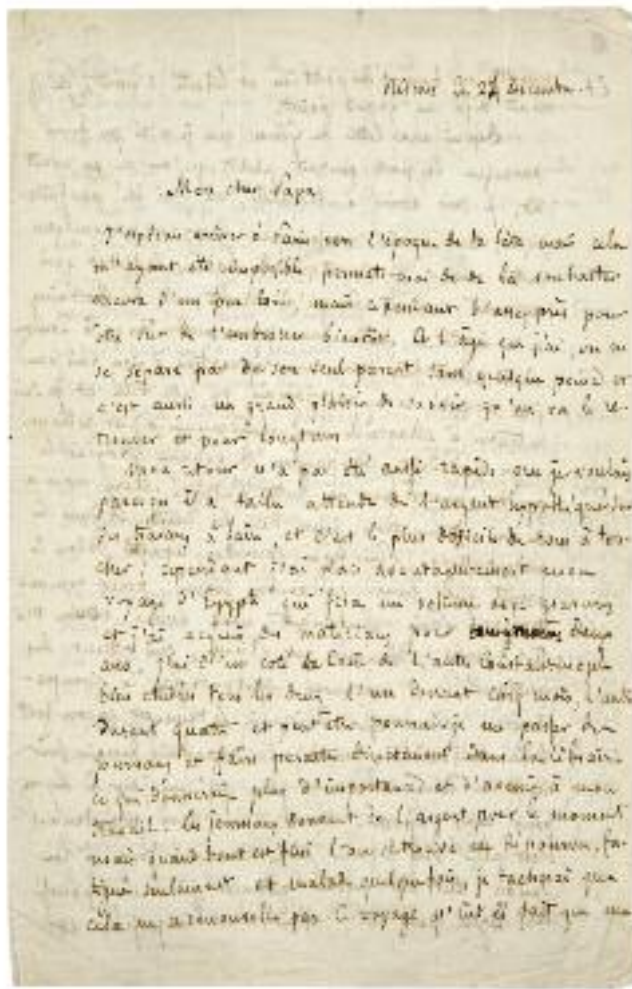 le 27 décembre 43
Mon cher Papa,
J'espérais arriver à Paris vers l'époque de ta fête, mais cela
m'ayant été impossible, permets-moi de te la souhaiter
encore d'un peu loin, mais cependant d'assez près pour
être sûr de t'embrasser bientôt. A l'âge que j'ai, on ne
se sépare pas de son seul parent sans quelque peine et
c'est aussi un grand plaisir de savoir qu'on va le re-
trouver et pour longtems.
Mon retour n'a pas été aussi rapide que je voulais
parcequ'il a fallu attendre de l'argent hypothéqué sur
des travaux à faire, et c'est le plus difficile de tous à tou-
cher; cependant j'ai placé avantageusement mon
voyage d'Egypte qui fera un volume avec gravures
et j'ai acquis des matériaux pour deux
ans, j'ai d'un coté le Caire de l'autre Constantinople
bien étudiés tous les deux l'un durant cinq mois, l'autre
durant quatre et peut être pourrai-je me passer des
journaux et faire paraître directement dans la librairie
ce qui donnerait plus d'importance et d'avenir à mon
travail. Les journaux donnent de l'argent pour le moment
mais quand tout est fini l'on se trouve au dépourvu, fa-
tigué seulement et malade quelquefois, je tacherai que
cela ne se renouvelle pas. Ce voyage, n'eut il fait que me